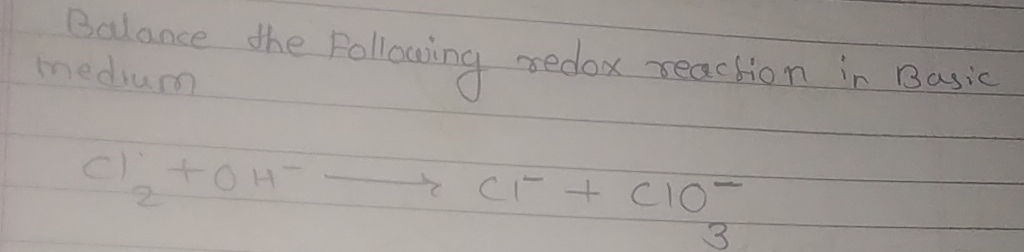 Balance the Following redox reaction in Basic
medium
Cl₂ + OH⁻ ⟶ Cl⁻ + ClO₃⁻